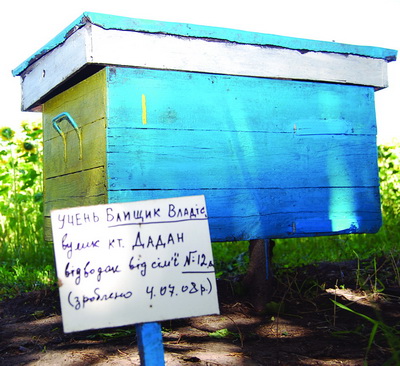 УЧЕНЬ БЛИЩИК ВЛАДІС
вулик кт. ДАДАН
відводок від сім'ї №12д
(зроблено 4.07.08р)